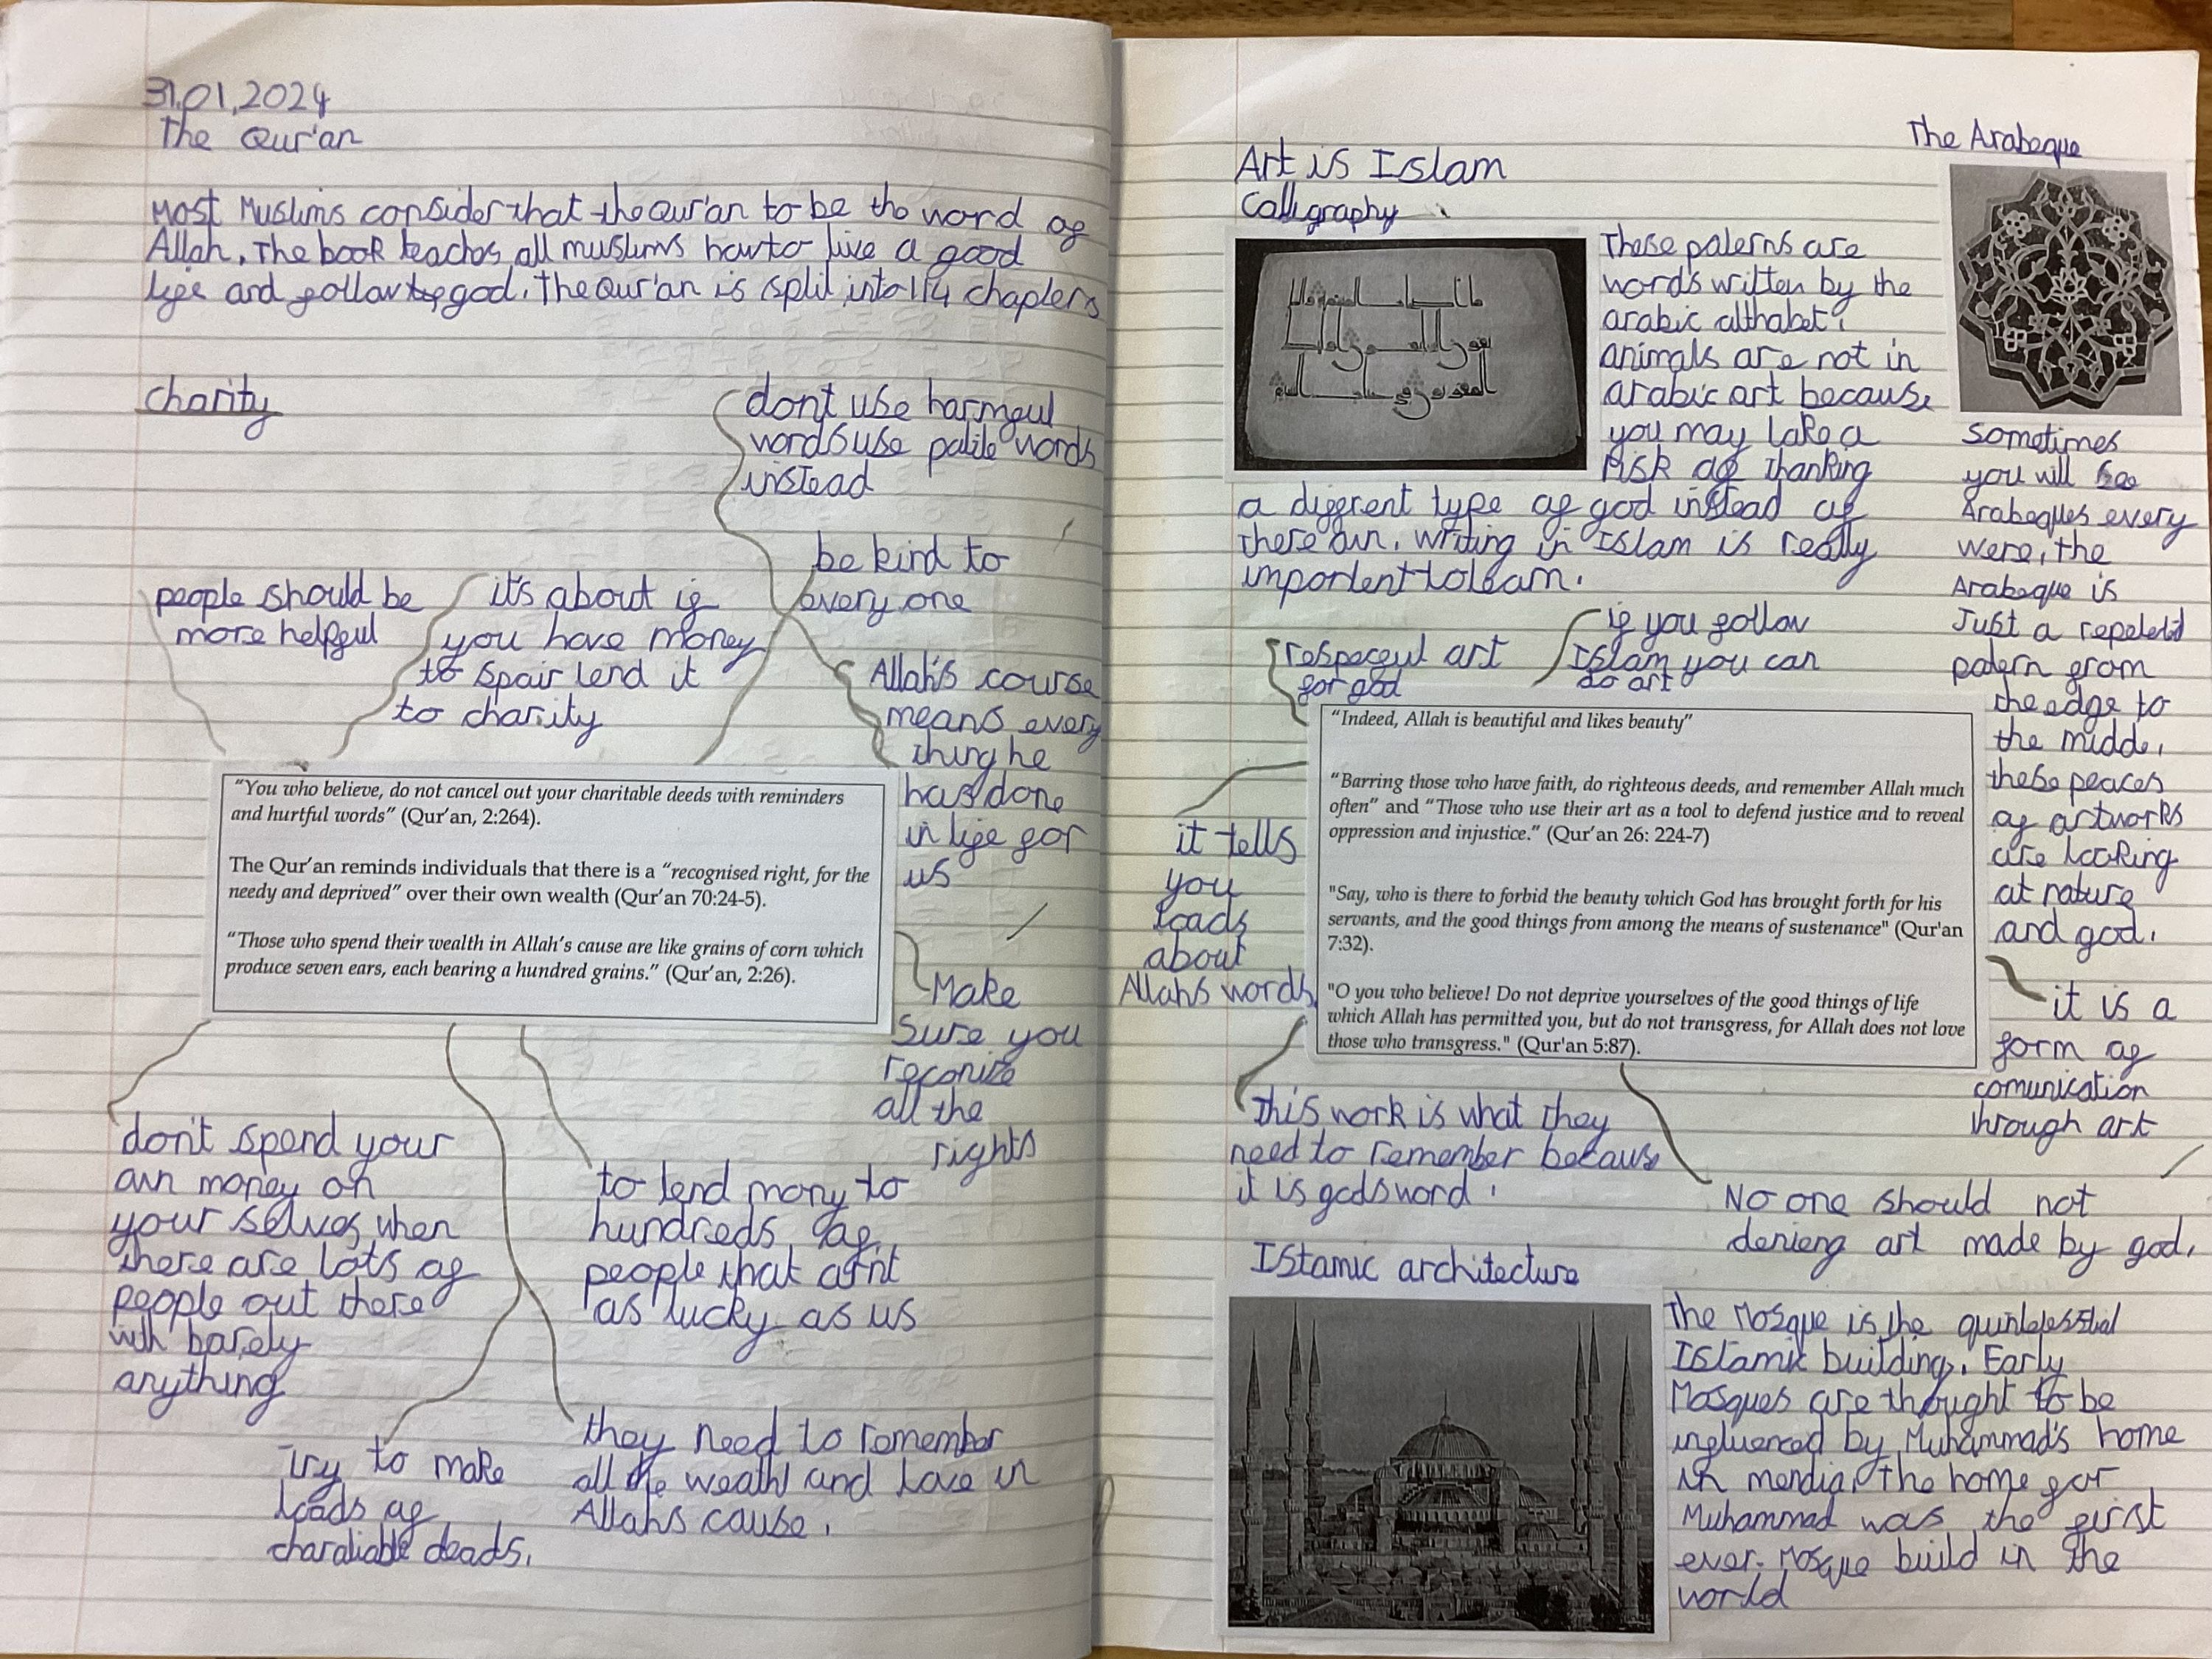 31.01.2024
The Qur'an
Most Muslims consider that the Qur'an to be the word of
Allah. The book teaches all muslims how to live a good
life and follow god. The Qur'an is split into 114 chapters
charity
dont use harmful
words use polite words
instead
be kind to
every one
people should be
more helpful
it's about if
you have money
to spair lend it
to charity
Allah's course
means every
thing he
has done
in life for
us
"You who believe, do not cancel out your charitable deeds with reminders
and hurtful words" (Qur'an, 2:264).
The Qur'an reminds individuals that there is a "recognised right, for the
needy and deprived" over their own wealth (Qur'an 70:24-5).
"Those who spend their wealth in Allah's cause are like grains of corn which
produce seven ears, each bearing a hundred grains." (Qur'an, 2:26).
Make
sure you
reconize
all the
rights
don't spend your
own money on
your selves when
there are lots of
people out there
with barely
anything
to lend mony to
hundreds of
people that arn't
as lucky as us
Try to make
loads of
deads.
they need to remember
all the and love in
Allahs cause.
The Arabeque
Art is Islam
Calligraphy
These paterns are
words written by the
arabic althabet.
animals are not in
arabic art because
you may take a
risk of thanking
a diffrent type of god instead of
there own. writing in Islam is really
importent to learn.
Sometimes
you will see
Arabeques every
were, the
Arabeque is
Just a
patern from
the edge to
the middle,
these peaces
of artworks
are looking
at nature
and god.
respecful art
for god
if you follow
Islam you can
do art
"Indeed, Allah is beautiful and likes beauty"
"Barring those who have faith, do righteous deeds, and remember Allah much
often" and "Those who use their art as a tool to defend justice and to reveal
oppression and injustice." (Qur'an 26: 224-7)
"Say, who is there to forbid the beauty which God has brought forth for his
servants, and the good things from among the means of sustenance" (Qur'an
7:32).
"O you who believe! Do not deprive yourselves of the good things of life
which Allah has permitted you, but do not transgress, for Allah does not love
those who transgress." (Qur'an 5:87).
it tells
you
loads
about
Allahs words
it is a
form of
comunication
through art
This work is what they
need to remember because
it is gods word.
No one should not
denieng art made by god.
Islamic architecture
The Mosque is the
Islamic building. Early
Mosques are thought to be
influenced by Muhammad's home
in mendia, the home for
Muhammad was the first
ever. Mosque build in the
world